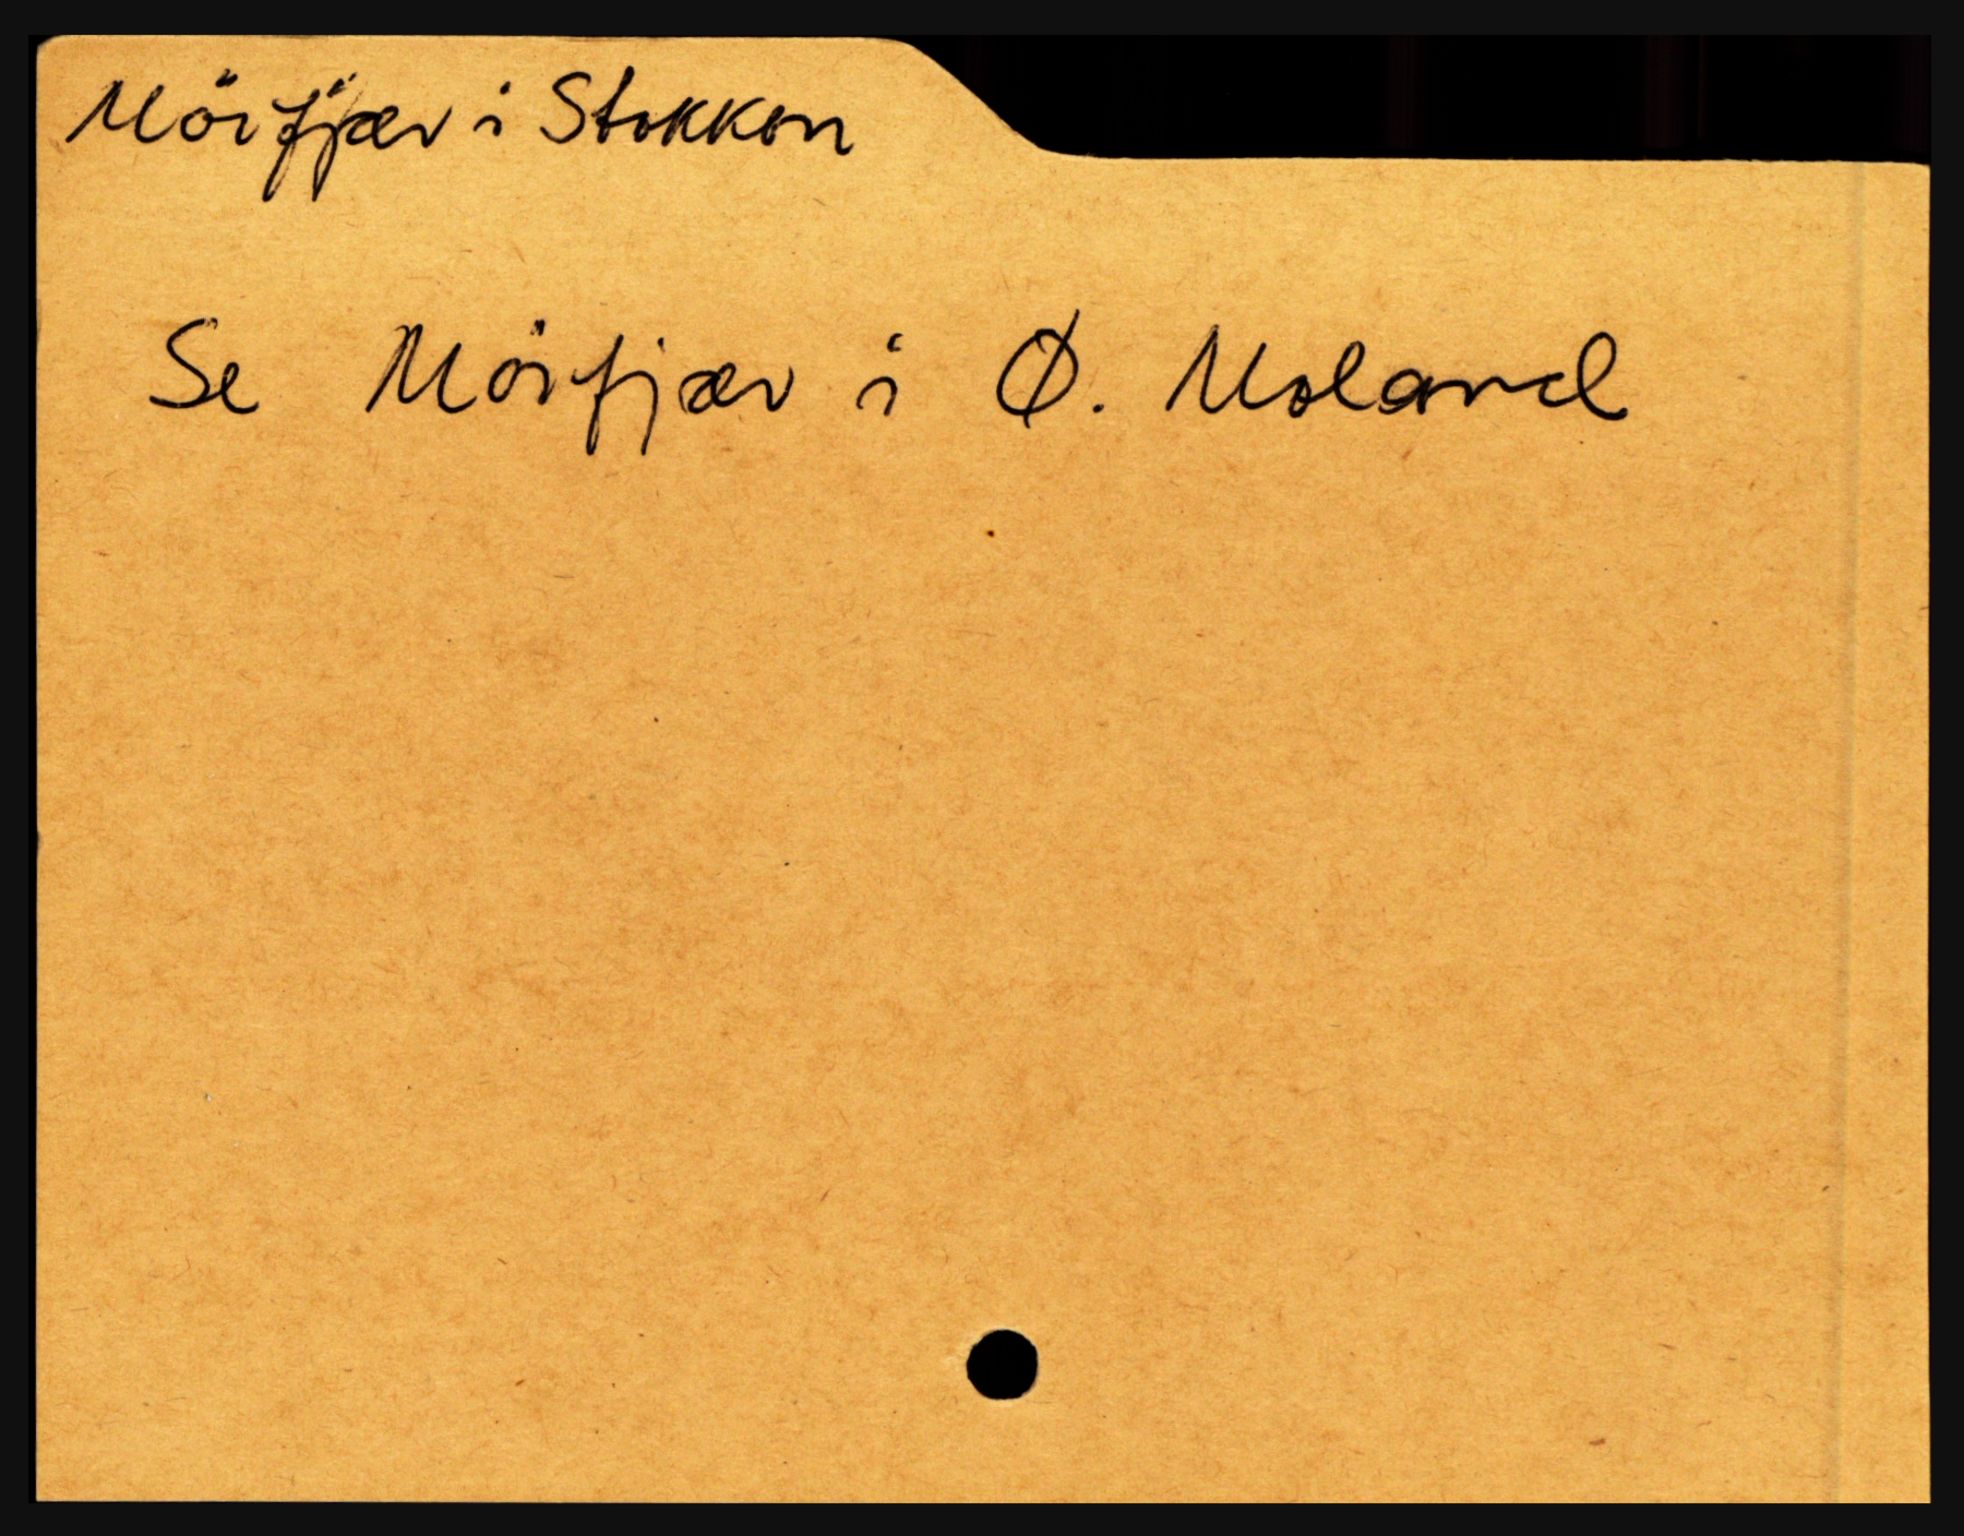 Mörfjær i Stokken
Se Mörfjær i Ø. Moland